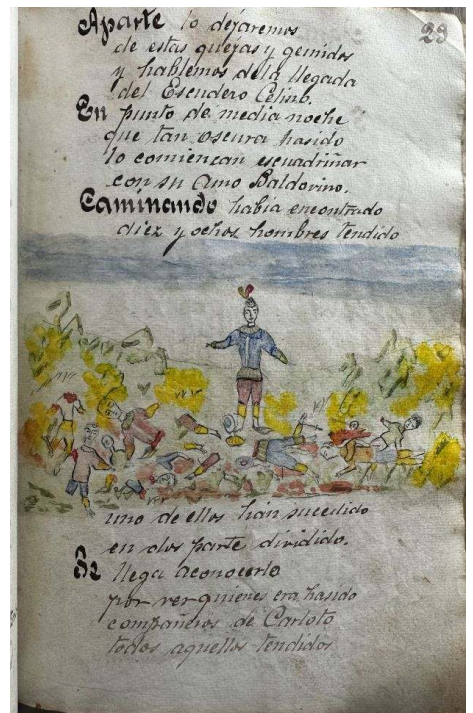 Aparte lo dejaremos
23
de estas quejas y gemidos
y hablemos dela llegada
del Escudero Celino.
En punto de media noche
que tan oscura hasido
lo comienzan escuadriñar
con su Amo Baldovino.
Caminando habia encontrado
diez y ochos hombres tendido
uno de ellos hán sucedido
en dos parte dividido.
Se llega aconocerlo
por ver quienes era hasido
compañeros de Carloto
todos aquellos tendidos